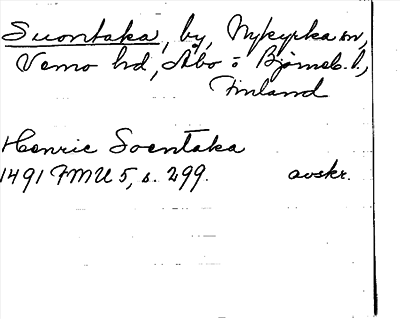 Suontaka, by, Nykyrka sn,
Vemo hd, Åbo o Björneb. l,
Finland
Henric Soentaka
1491 FMU 5, s. 299. avskr.